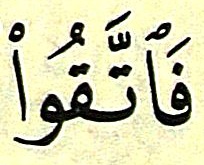 فَٱتَّقُواْ